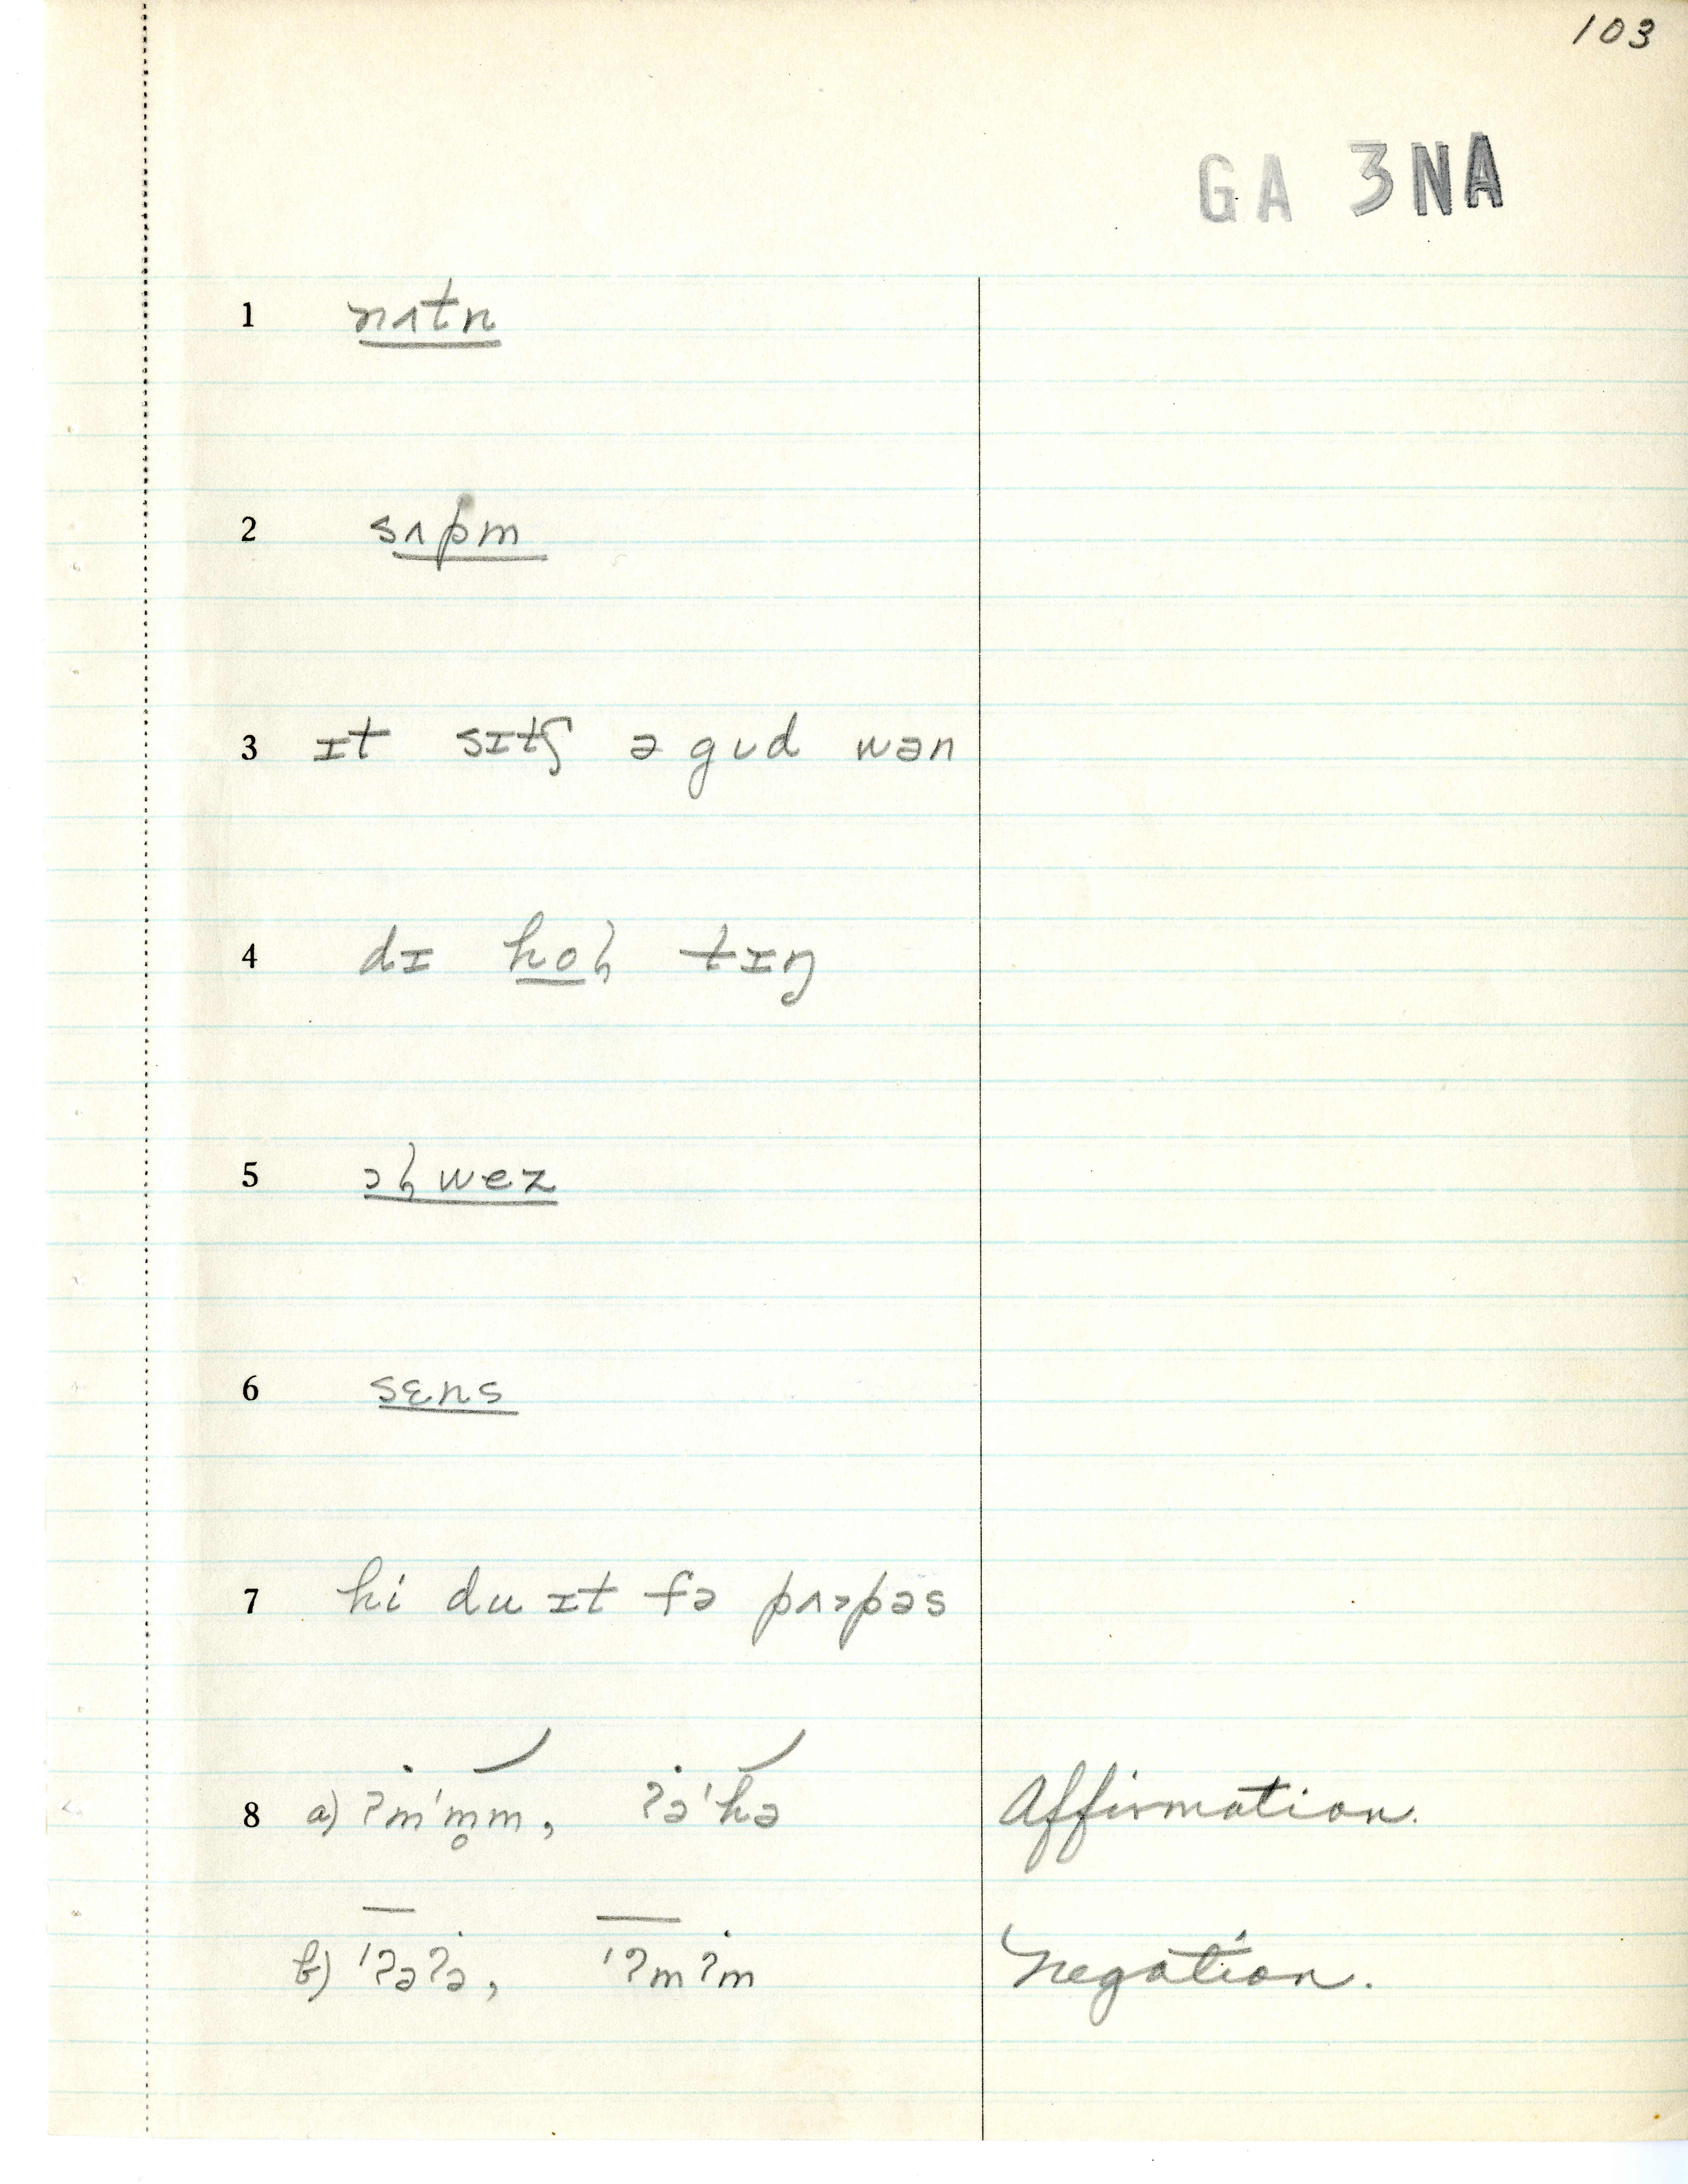 103
GA 3NA
1 nʌtn
2 sʌpm
3 ɪt sɪtʃ ə gud wən
4 dɪ hoɦ tɪŋ
5 ɔɦwez
6 sɛns
7 hi du ɪt fə pɜpəs
8 a) ʔm'm̥m, ʔə'hə Affirmation.
b) 'ʔəʔə, 'ʔmʔm Negation.